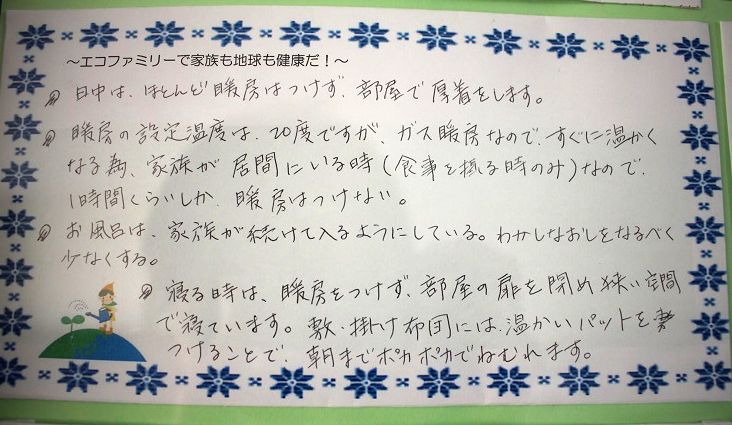 ～エコファミリーで家族も地球も健康だ！～
日中は、ほとんど暖房はつけず、部屋で厚着をします。
暖房の設定温度は、20度ですが、ガス暖房なので、すぐに温かく
なる為、家族が居間にいる時(食事を摂る時のみ)なので、
1時間くらいしか、暖房はつけない。
お風呂は、家族が続けて入るようにしている。わかしなおしをなるべく
少なくする。
寝る時は、暖房をつけず、部屋の扉を閉め狭い空間
で寝ています。敷・掛け布団には、温かいパットを
つけることで、朝までポカポカでねむれます。